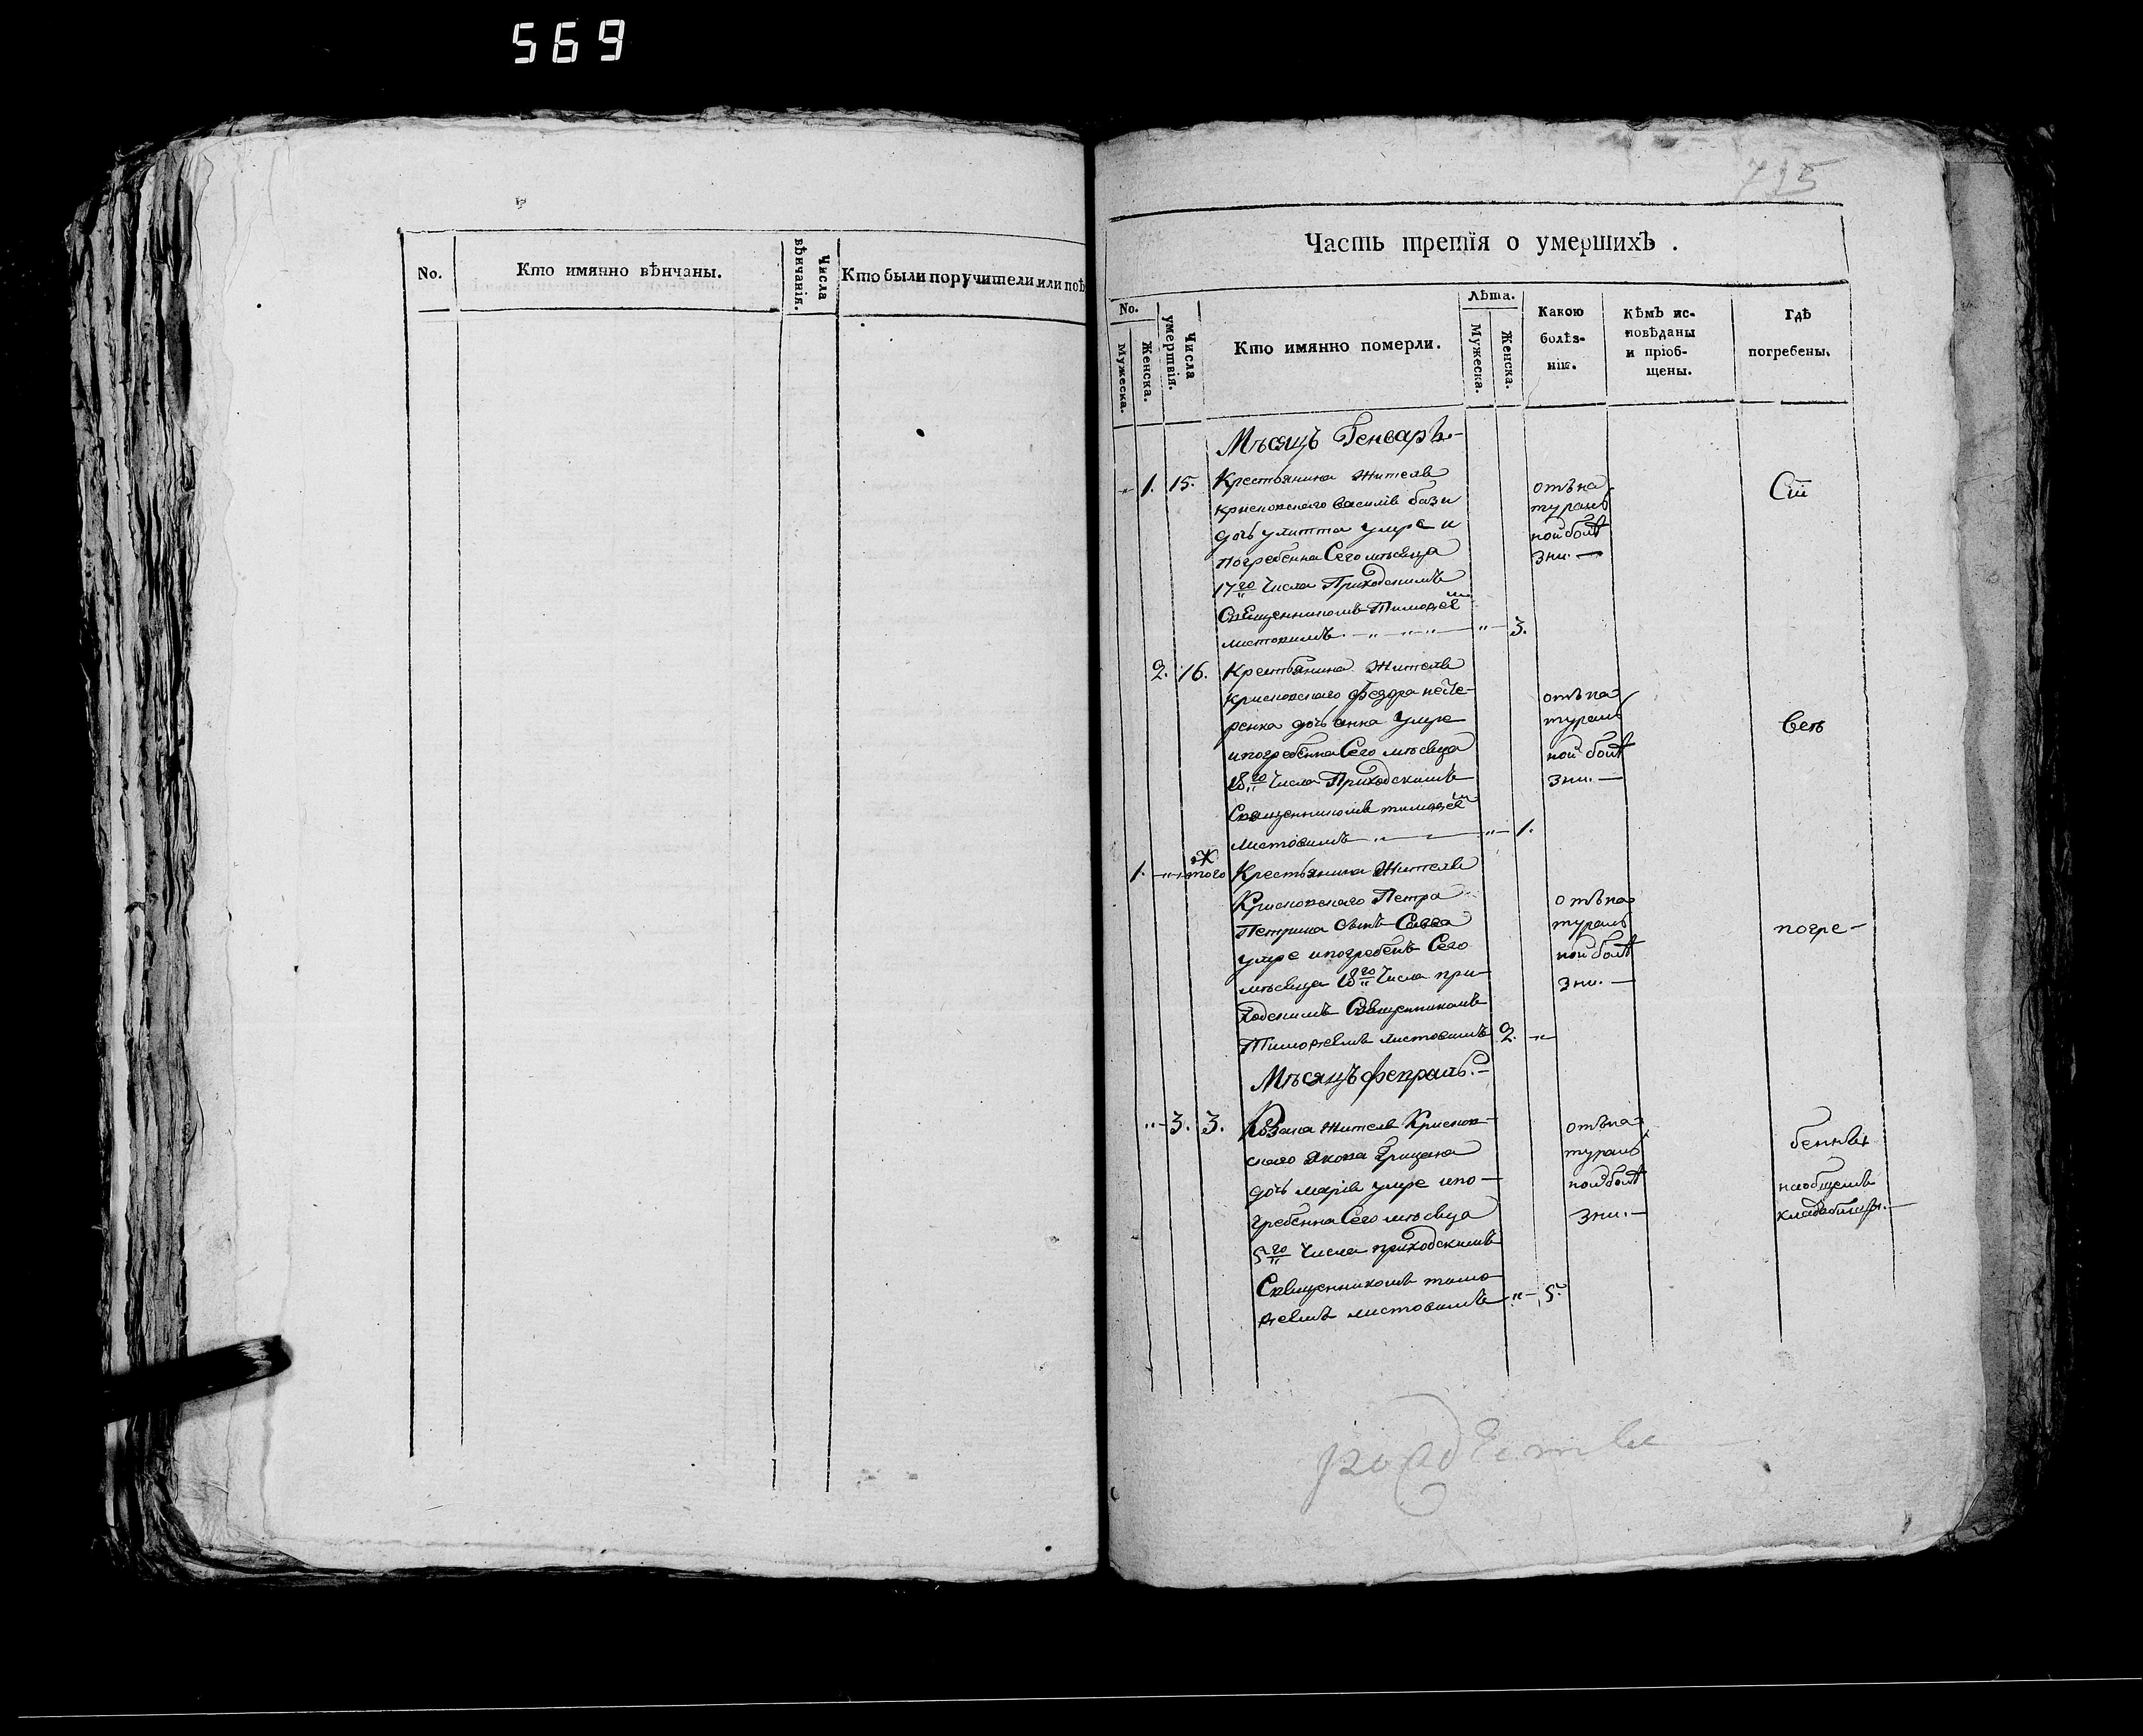 569
No.
Кто имянно вѣнчаны.
Числа
вѣнчанія.
Кто были поручители или поѣ
715
Часть третія о умершихъ .
No.
Мужеска.
Женска.
Числа
умертвія.
Кто имянно померли.
Лѣта.
Мужеска.
Женска.
Какою
болѣз-
нію.
Кѣмъ ис-
повѣданы
и пріоб-
щены.
Гдѣ
погребены.
Мѣсяцъ Генварь.-
1. 15. Крестьянина Жителя
василія
дочь улитта умре и
погребенна Сего мѣсяца
17го Числа Приходскимъ
Священникомъ Тимофеемъ
листовимъ 3.
отъ на
тураль
ной болѣ
зни. —
Сіи
2. 16. Крестьянина Жителя
феодора нече-
ренка дочь анна умре
ипогребенна Сего мѣсяца
18го Числа Приходскимъ
Священникомъ тимофеемъ
листовимъ 1.
отъ на
тураль
ной болѣ
зни. —
всѣ
1. того ж Крестьянина Жителя
Петра
Петрика Сынъ Савва
умре ипогребенъ Сего
мѣсяца 18го Числа при-
ходскимъ Священникомъ
Тимофеемъ листовимъ 2.
отъ на
тураль
ной болѣ
зни. —
погре-
Мѣсяцъ февраль.-
3. 3. Козака Жителя
якова Грицака
дочь марія умре ипо-
гребенна Сего мѣсяца
5го Числа приходскимъ
Священникомъ тимо-
феемъ листовимъ 5.
отъ на
тураль
ной болѣ
зни. —
бенны
наобщемъ
кладбищѣ.